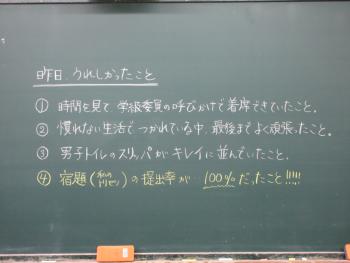 昨日 うれしかったこと
① 時間を見て 学級委員の呼びかけで着席できていたこと。
② 慣れない生活で つかれている中、最後までよく頑張ったこと。
③ 男子トイレのスリッパが キレイに並んでいたこと。
④ 宿題(私のトリセツ)の提出率が 100%だったこと!!!!!